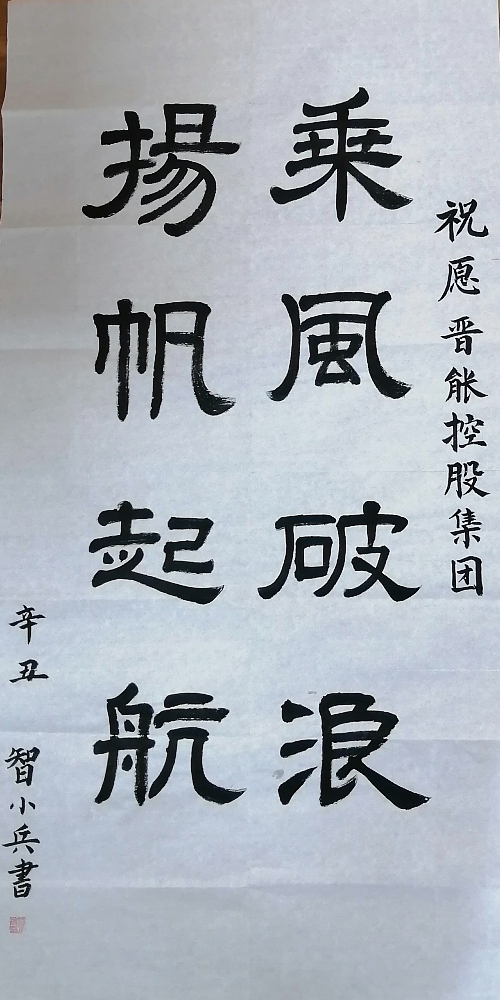 祝愿晋能控股集团
乘風破浪
揚帆起航
辛丑 智小兵書